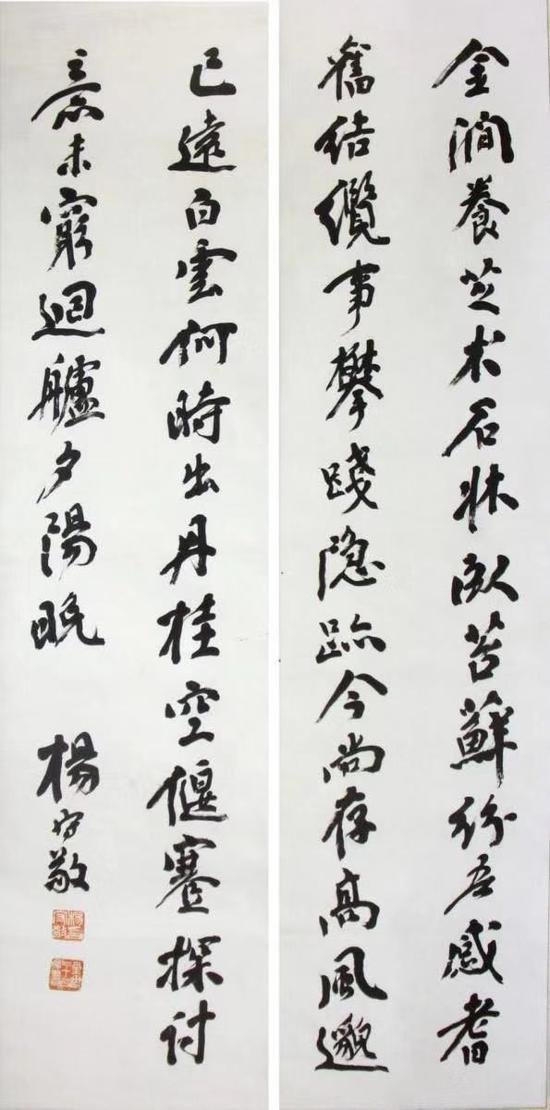 金澗養芝术石牀臥苔蘚紛吾感耆
舊結纜事攀踐隐跡今尚存高風邈
已遠白雲何時出丹桂空偃蹇探討
意未窮迴艫夕陽晚
楊守敬